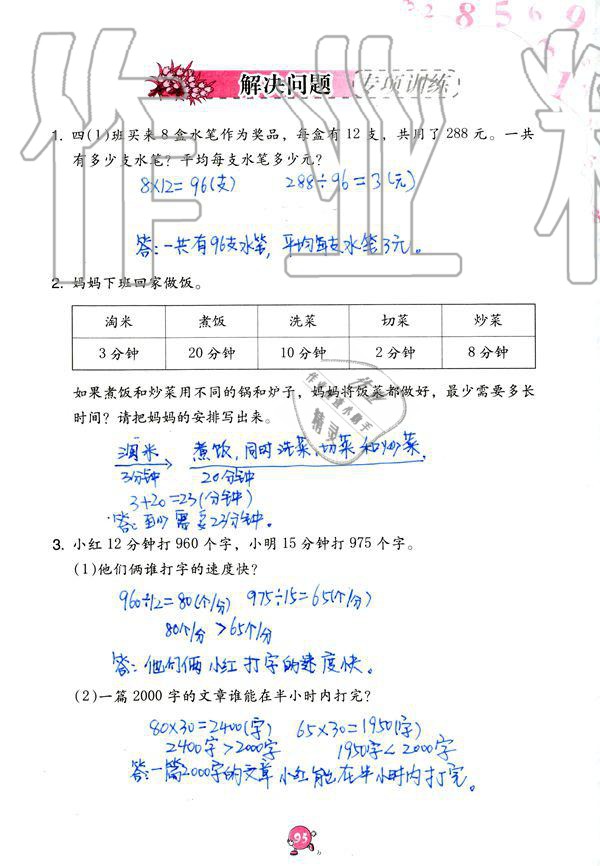 3 2 8 5 6 9
解决问题 专项训练
1. 四(1)班买来 8 盒水笔作为奖品，每盒有 12 支，共用了 288 元。一共
有多少支水笔？平均每支水笔多少元？
8×12=96(支) 288÷96=3(元)
答：一共有96支水笔，平均每支水笔3元。
2. 妈妈下班回家做饭。
淘米 煮饭 洗菜 切菜 炒菜
3 分钟 20 分钟 10 分钟 2 分钟 8 分钟
如果煮饭和炒菜用不同的锅和炉子，妈妈将饭菜都做好，最少需要多长
时间？请把妈妈的安排写出来。
淘米 → 煮饭，同时洗菜、切菜和炒菜。
3分钟 20分钟
3+20=23(分钟)
答：至少需要23分钟。
3. 小红 12 分钟打 960 个字，小明 15 分钟打 975 个字。
(1)他们俩谁打字的速度快？
960÷12=80(个/分) 975÷15=65(个/分)
80个/分 > 65个/分
答：他们俩小红打字的速度快。
(2)一篇 2000 字的文章谁能在半小时内打完？
80×30=2400(字) 65×30=1950(字)
2400字>2000字 1950字<2000字
答：一篇2000字的文章小红能在半小时内打完。
95
作业精灵